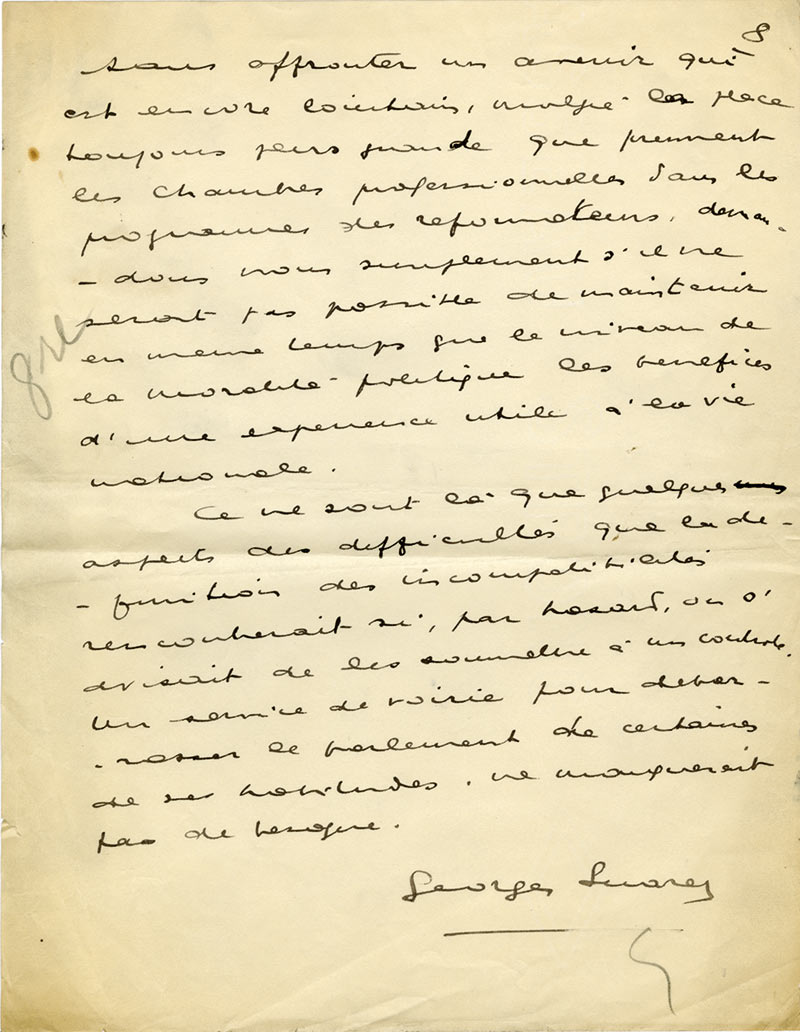 8
sans affronter un avenir qui
est encore lointain, malgré la place
toujours plus grande que prennent
les chambres professionnelles dans les
programmes des réformateurs, deman-
-dons nous simplement s'il ne
serait pas possible de maintenir
en même temps que le niveau de
la moralité politique les bénéfices
d'une expérience utile à la vie
nationale.
Ce ne sont là que quelques
aspects des difficultés que la dé-
-finition des incompatibilités
rencontrerait si, par hasard, on s'
avisait de les soumettre à un contrôle.
Un service de voirie pour débar-
-rasser le parlement de certaines
de ses habitudes, ne manquerait
pas de besogne.
Georges Suarez